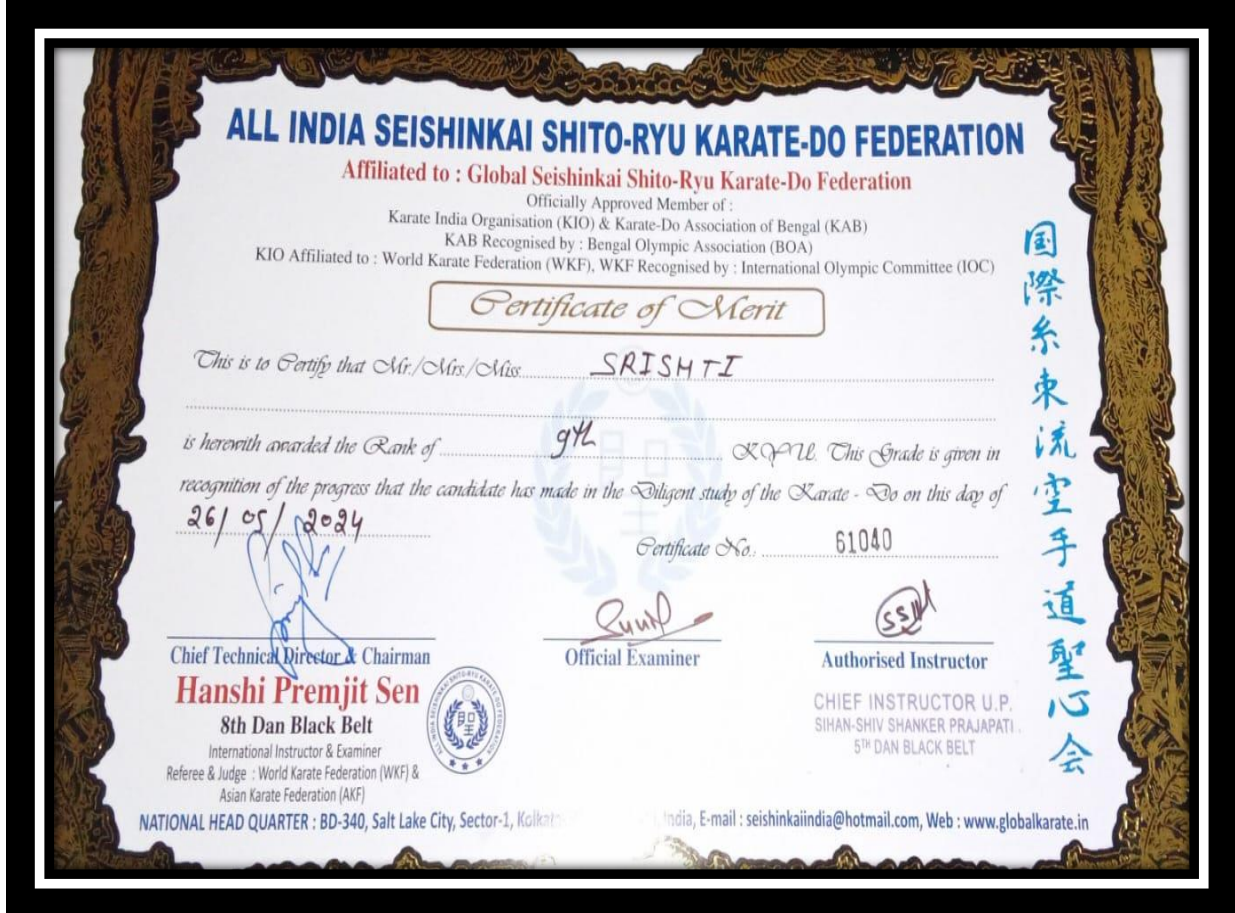 ALL INDIA SEISHINKAI SHITO-RYU KARATE-DO FEDERATION
Affiliated to : Global Seishinkai Shito-Ryu Karate-Do Federation
Officially Approved Member of :
Karate India Organisation (KIO) & Karate-Do Association of Bengal (KAB)
KAB Recognised by : Bengal Olympic Association (BOA)
KIO Affiliated to : World Karate Federation (WKF), WKF Recognised by : International Olympic Committee (IOC)
Certificate of Merit
This is to Certify that Mr./Mrs./Miss. SRISHTI
is herewith awarded the Rank of 9th KYU. This Grade is given in
recognition of the progress that the candidate has made in the Diligent study of the Karate - Do on this day of
26/05/2024
Certificate No.: 61040
Chief Technical Director & Chairman
Hanshi Premjit Sen
8th Dan Black Belt
International Instructor & Examiner
Referee & Judge : World Karate Federation (WKF) &
Asian Karate Federation (AKF)
ALL INDIA SEISHINKAI SHITO-RYU KARATE-DO FEDERATION
Official Examiner
Authorised Instructor
CHIEF INSTRUCTOR U.P.
SIHAN-SHIV SHANKER PRAJAPATI.
5TH DAN BLACK BELT
国際糸東流空手道聖心会
NATIONAL HEAD QUARTER : BD-340, Salt Lake City, Sector-1, India, E-mail : seishinkaiindia@hotmail.com, Web : www.globalkarate.in